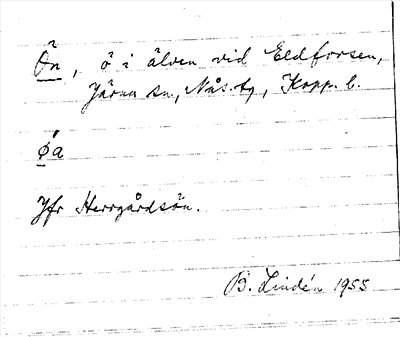 Ön, ö i älven vid Eldforsen,
Järna sn, Nås tg, Kopp. l.
øa
Jfr Herrgårdsön.
B. Lindén 1955